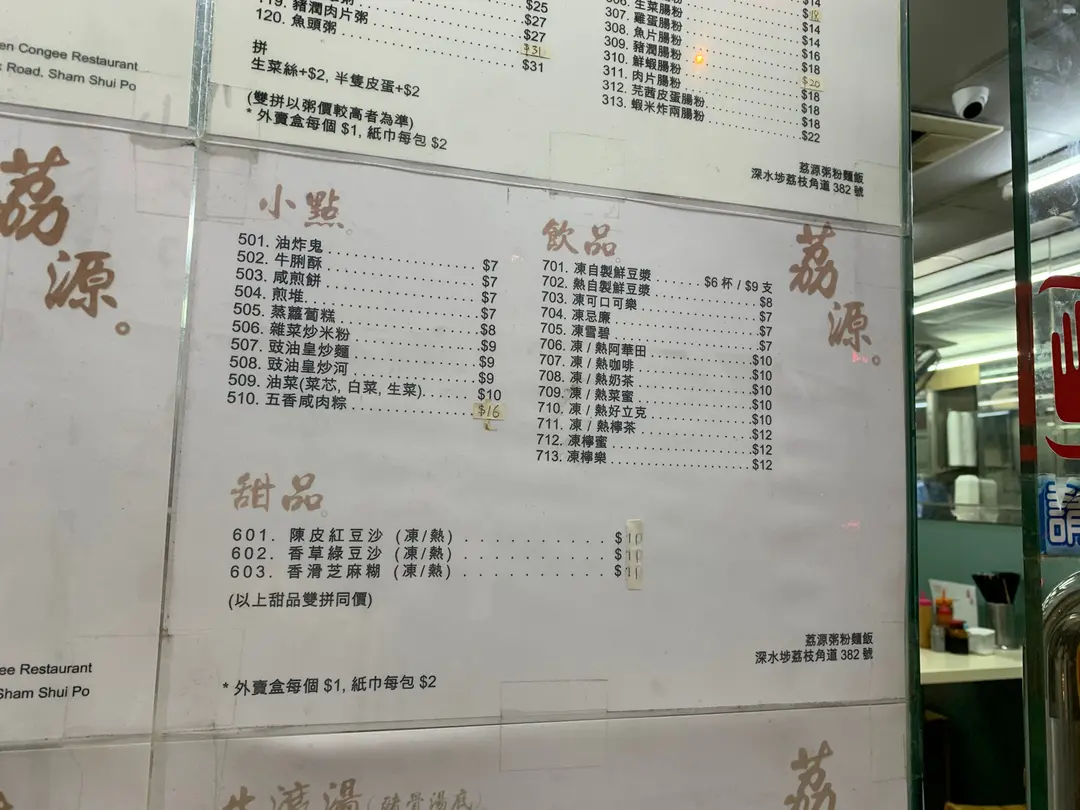 en Congee Restaurant
Road, Sham Shui Po
荔源。
ee Restaurant
Sham Shui Po
$25
$27
$27
119. 豬潤肉片粥 $31
120. 魚頭粥 $31
拼
生菜絲+$2, 半隻皮蛋+$2
(雙拼以粥價較高者為準)
* 外賣盒每個 $1, 紙巾每包 $2
306. 生菜腸粉 $14
307. 雞蛋腸粉 $16
308. 魚片腸粉 $18
309. 豬潤腸粉 $20
310. 鮮蝦腸粉 $18
311. 肉片腸粉 $18
312. 芫茜皮蛋腸粉 $18
313. 蝦米炸兩腸粉 $22
荔源粥粉麵飯
深水埗荔枝角道 382 號
小點。
501. 油炸鬼 $7
502. 牛脷酥 $7
503. 咸煎餅 $7
504. 煎堆 $7
505. 蒸蘿蔔糕 $8
506. 雜菜炒米粉 $9
507. 豉油皇炒麵 $9
508. 豉油皇炒河 $9
509. 油菜(菜芯, 白菜, 生菜) $10
510. 五香咸肉粽 $16
飲品。
701. 凍自製鮮豆漿 $6 杯 / $9 支
702. 熱自製鮮豆漿 $8
703. 凍可口可樂 $7
704. 凍忌廉 $7
705. 凍雪碧 $7
706. 凍 / 熱阿華田 $10
707. 凍 / 熱咖啡 $10
708. 凍 / 熱奶茶 $10
709. 凍 / 熱菜蜜 $10
710. 凍 / 熱好立克 $10
711. 凍 / 熱檸茶 $12
712. 凍檸蜜 $12
713. 凍檸樂 $12
荔源。
甜品。
601. 陳皮紅豆沙 (凍/熱) $10
602. 香草綠豆沙 (凍/熱) $10
603. 香滑芝麻糊 (凍/熱) $11
(以上甜品雙拼同價)
* 外賣盒每個 $1, 紙巾每包 $2
荔源粥粉麵飯
深水埗荔枝角道 382 號
荔
請